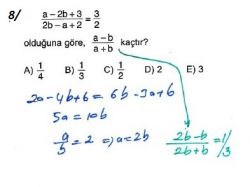 8/ \frac{a-2b+3}{2b-a+2} = \frac{3}{2}
olduğuna göre, \frac{a-b}{a+b} kaçtır?
A) \frac{1}{4} B) \frac{1}{3} C) \frac{1}{2} D) 2 E) 3
2a-4b+6 = 6b-3a+6
5a = 10b
\frac{a}{b} = 2 ⇒ a = 2b
\frac{2b-b}{2b+b} = 1/3